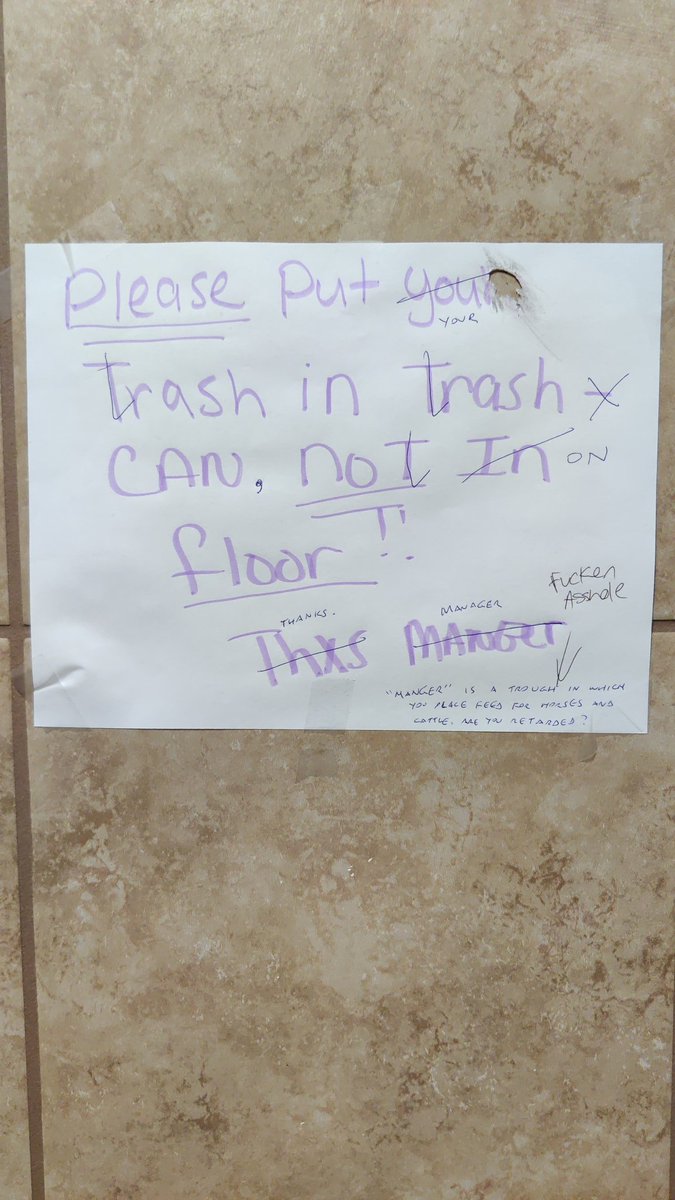 Please Put your
YOUR
Trash in Trash
CAN, not In ON
floor!!
THANKS. MANAGER
Thxs MANGEr
Fucken
Asshole
"MANGER" IS A TROUGH IN WHICH
YOU PLACE FEED FOR HORSES AND
CATTLE. ARE YOU RETARDED?